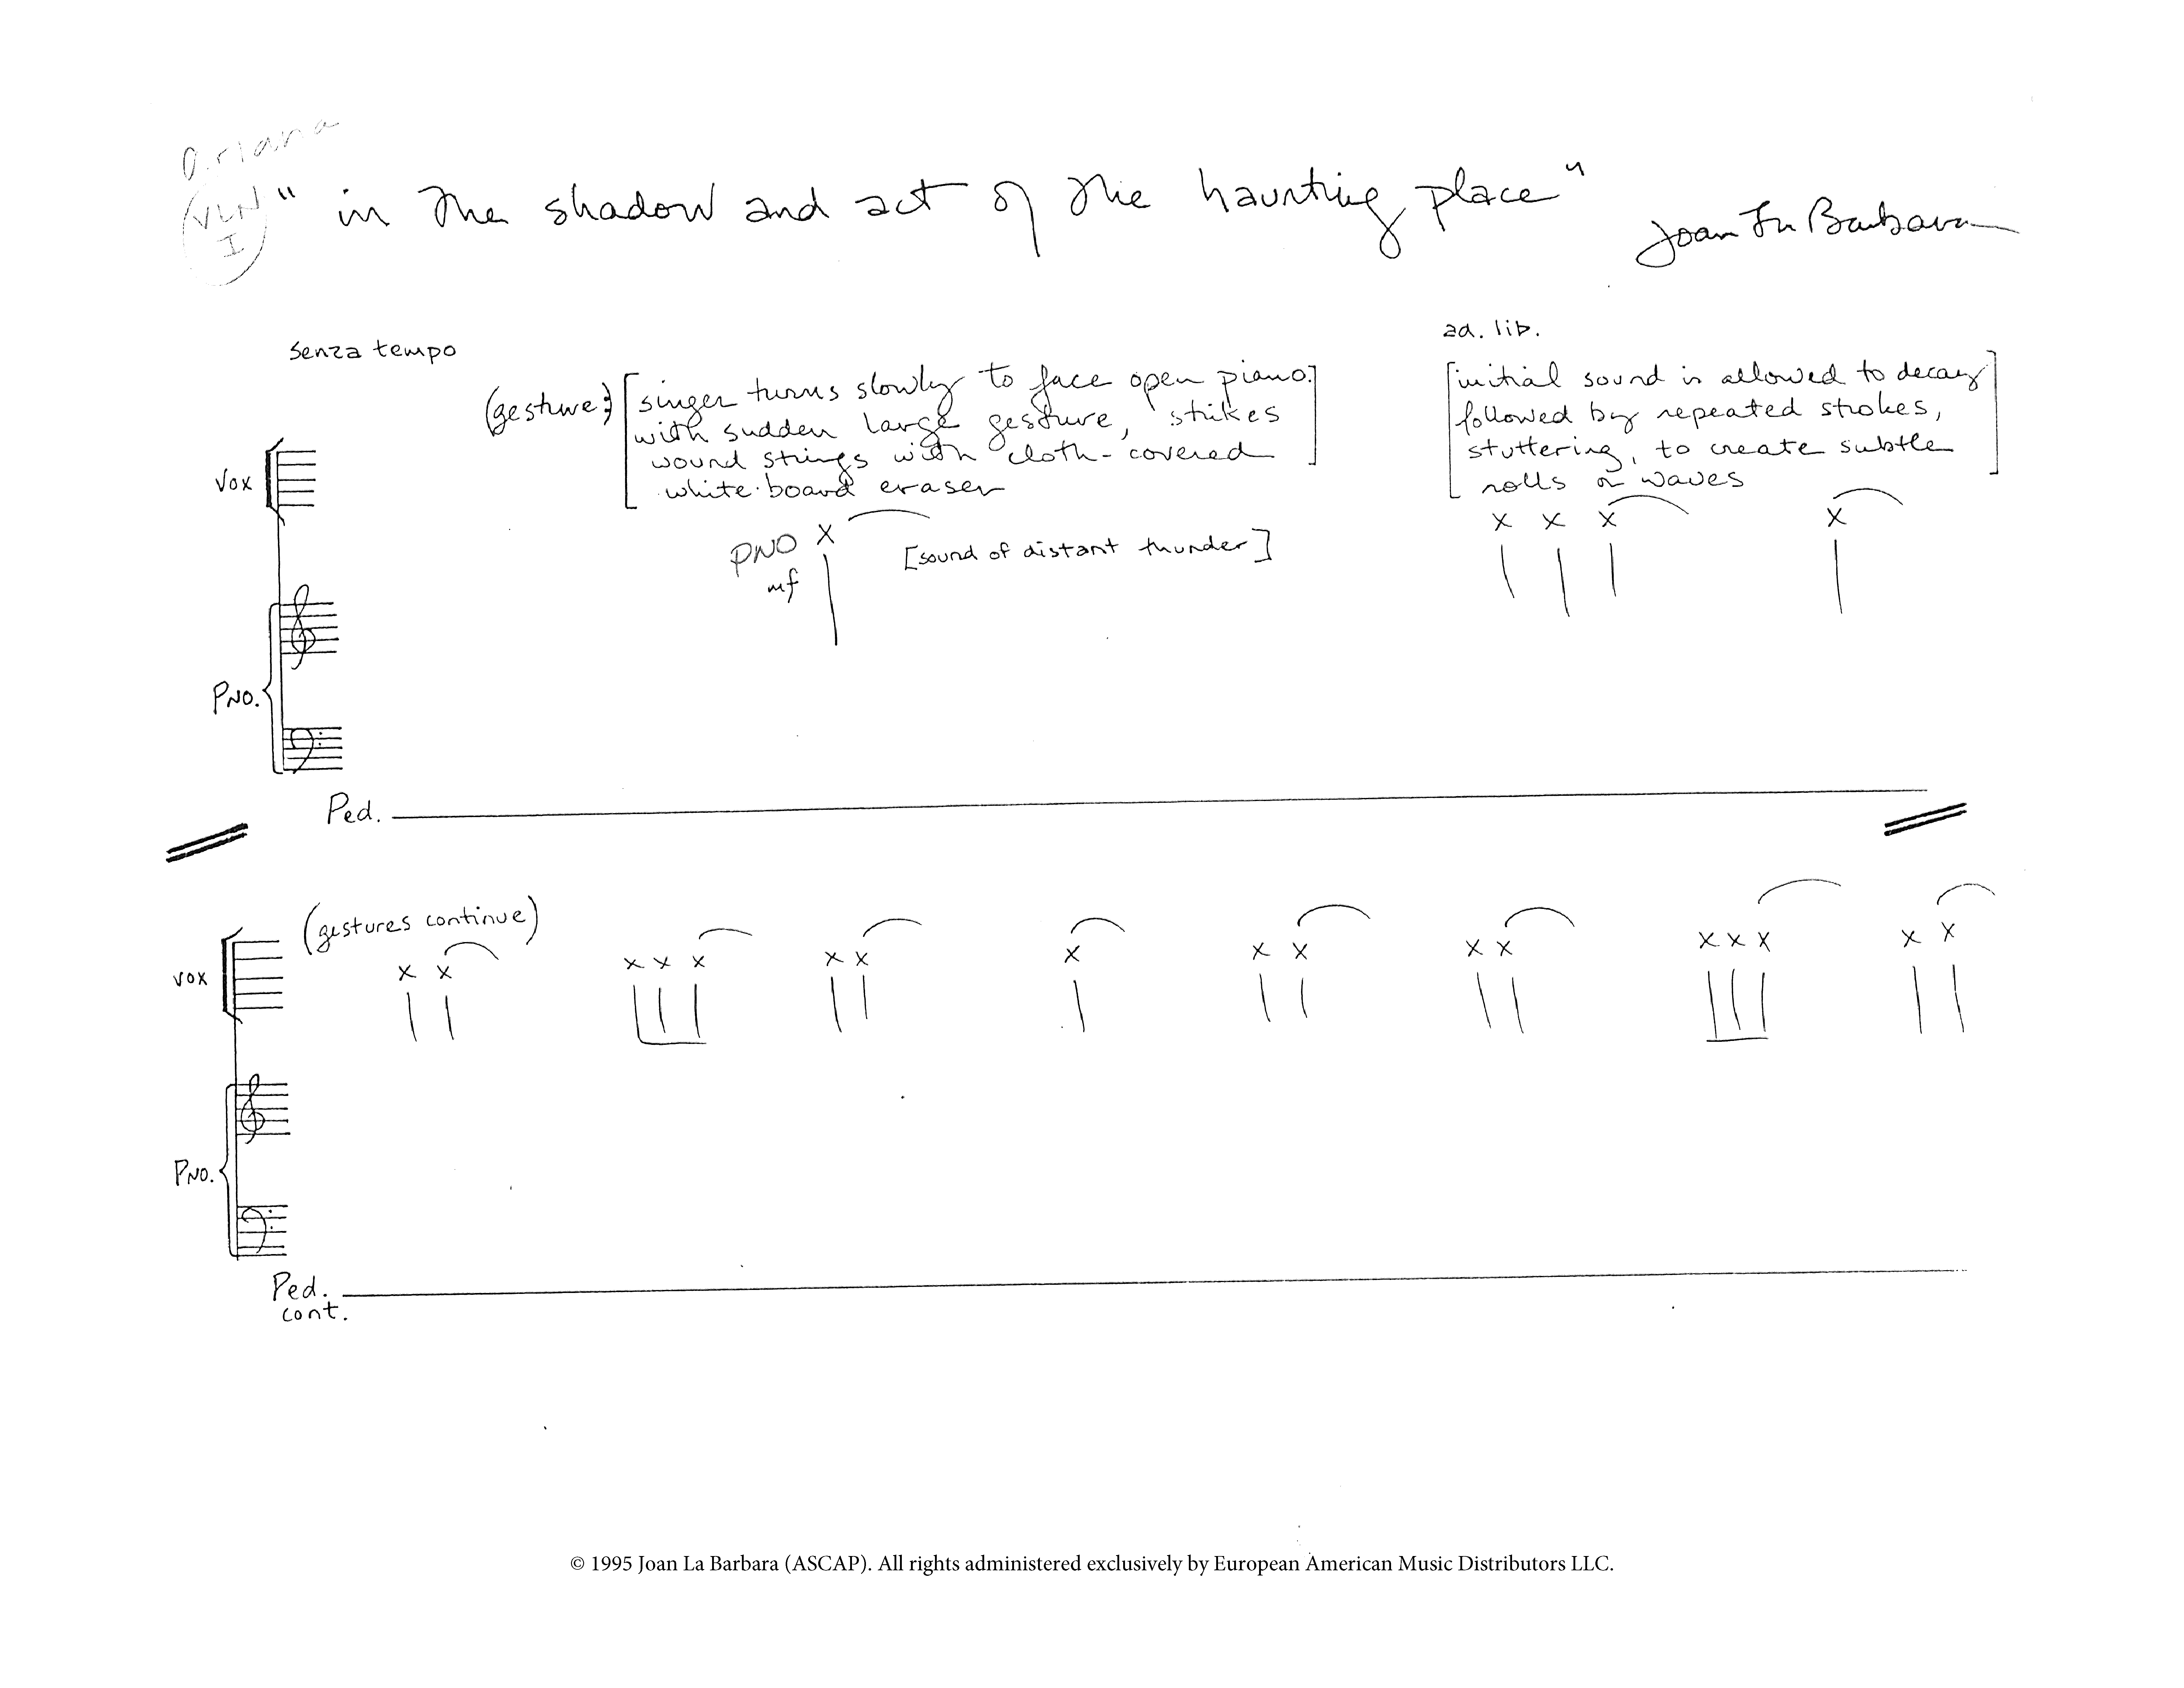 Oriana
VLN
I
"in the shadow and act of the haunting place"
Joan La Barbara
senza tempo
(gesture:)
[singer turns slowly to face open piano.
with sudden large gesture, strikes
wound strings with cloth-covered
white-board eraser]
ad. lib.
[initial sound is allowed to decay
followed by repeated strokes,
stuttering, to create subtle
rolls or waves]
VOX
PNO
mf
[sound of distant thunder]
PNO.
Ped.
(gestures continue)
VOX
PNO.
Ped.
cont.
© 1995 Joan La Barbara (ASCAP). All rights administered exclusively by European American Music Distributors LLC.